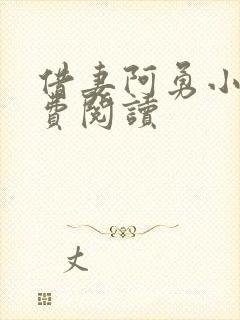 借妻阿勇小
費閱讀
丈